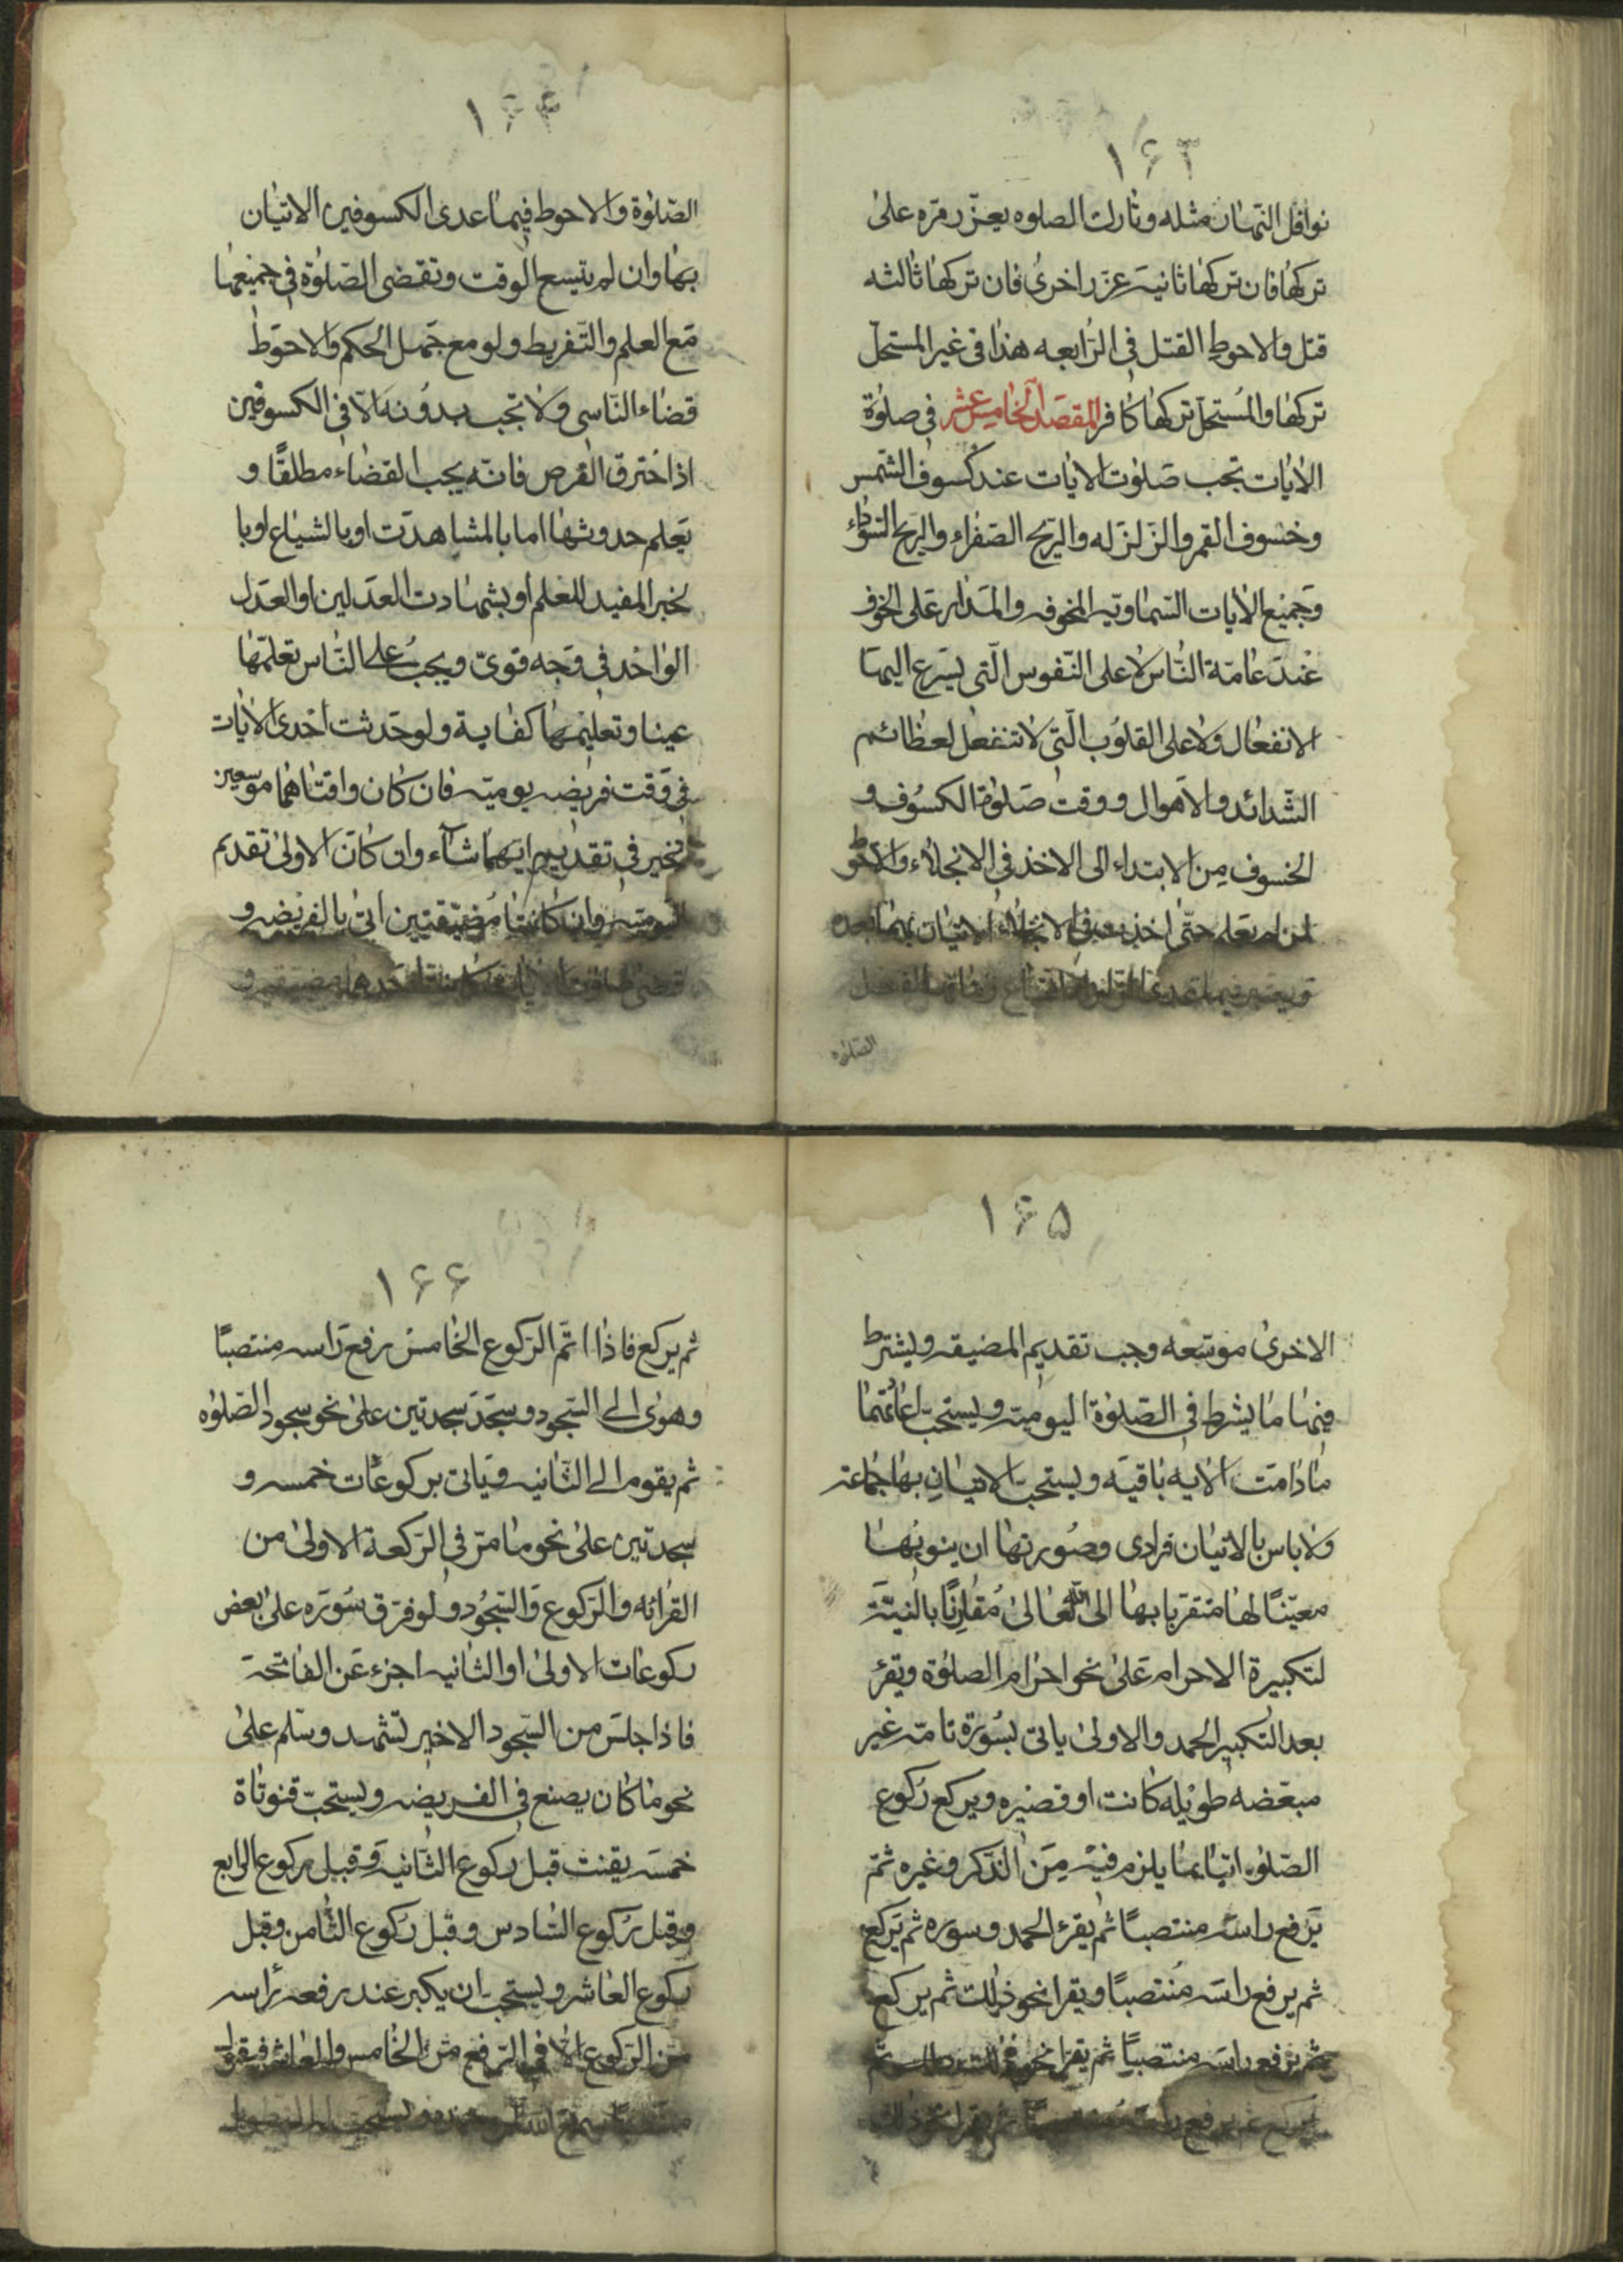 ۱۶۳
نوافل النّهار مثله وتارك الصلوه يعزّر مرّه على
تركها فان تركها ثانيه عزّر اخرى فان تركها ثالثه
قتل والاحوط القتل فى الرّابعه هذا فى غير المستحلّ
تركها والمستحلّ تركها كافر المقصد الخامس عشر فى صلوة
الايات تجب صلوت الايات عند كسوف الشمس
وخسوف القمر والزلزله والريح الصفراء والريح السوداء
وجميع الايات السماويه المخوفه والمدار على الخوف
عند عامّة النّاس لا على النّفوس الّتى يسرع اليها
الانفعال ولا على القلوب الّتى لا تنفعل لعظائم
الشّدائد والاهوال ووقت صلوة الكسوف و
الخسوف من الابتداء الى الاخذ فى الانجلاء والاحوط
لمن لم يعلم حتّى اخذ فى الانجلاء الاتيان بهما بعده
ويعتبر فيما عدى الزلزله
الصلوة
۱۶۴
الصّلوة والاحوط فيما عدى الكسوفين الاتيان
بها وان لم يتّسع الوقت وتقضى الصّلوة فى جميعها
مع العلم والتّفريط ولو مع جهل الحكم والاحوط
قضاء النّاسى ولا تجب بدونه الّا فى الكسوفين
اذا اخترق القرص فانّه يجب القضاء مطلقًا و
يعلم حدوثها اما بالمشاهدت او بالشياع او با
لخبر المفيد للعلم او بشهادت العدلين او العدل
الواحد فى وجه قوىّ ويجب على النّاس تعلّمها
عينا وتعليمها كفاية ولو حدثت احدى الايات
فى وقت فريضه يوميّه فان كان وقتاهما موسعين
تخير فى تقديم ايّهما شآء وان كان الاولى تقديم
اليوميّه وان كانتا مضيّقتين اتى بالفريضه و
قضى صلوة الايات احدهما مضيّقه و
۱۶۵
الاخرى موسّعه وجب تقديم المضيقه ويشترط
فيها ما يشرط فى الصّلوة اليوميّه ويستحبّ اعادتها
ما دامت الايه باقيه ويستحبّ الاتيان بها جماعة
ولا باس بالاتيان فرادى وصورتها ان ينوبها
معيّنًا لها متقرّبا بها الى الله تعالى مقارنًا بالنيّة
لتكبيرة الاحرام على نحو احرام الصلوة ويقرء
بعد التكبير الحمد والاولى ياتى بسورة تامّه غير
مبعّضه طويله كانت او قصيره ويركع ركوع
الصّلوة اتيا بما يلزم فيه من الذّكر وغيره ثمّ
يرفع راسه منتصبًا ثم يقرء الحمد وسوره ثم يركع
ثم يرفع راسه منتصبًا ويقرا نحو ذلك ثم يركع
ثم يرفع راسه منتصبًا ثم يقرا نحو ذلك ثمّ
يركع ثم يرفع راسه منتصبًا ثم يقرا نحو ذلك
۱۶۶
ثم يركع فاذا اتمّ الركوع الخامس رفع راسه منتصبًا
وهوى الى السّجود وسجد سجدتين على نحو سجود الصّلوه
ثم يقوم الى الثّانيه وياتى بركوعات خمسه و
سجدتين على نحو ما مرّ فى الرّكعة الاولى من
القرائه والركوع والسّجود ولو فرّق سوره على بعض
ركوعات الاولى او الثانيه اجزء عن الفاتحة
فاذا جلس من السّجود الاخير تشهد وسلم على
نحو ما كان يصنع فى الفريضه ويستحبّ قنوتاة
خمسه يقنت قبل ركوع الثّانيه وقبل ركوع الرابع
وقبل ركوع السّادس وقبل ركوع الثّامن وقبل
ركوع العاشر ويستحبّ ان يكبر عند رفعه راسه
من الركوع الّا فى الرّفع من الخامس والعاشر فيقول
سمع الله لمن حمده ويستحبّ